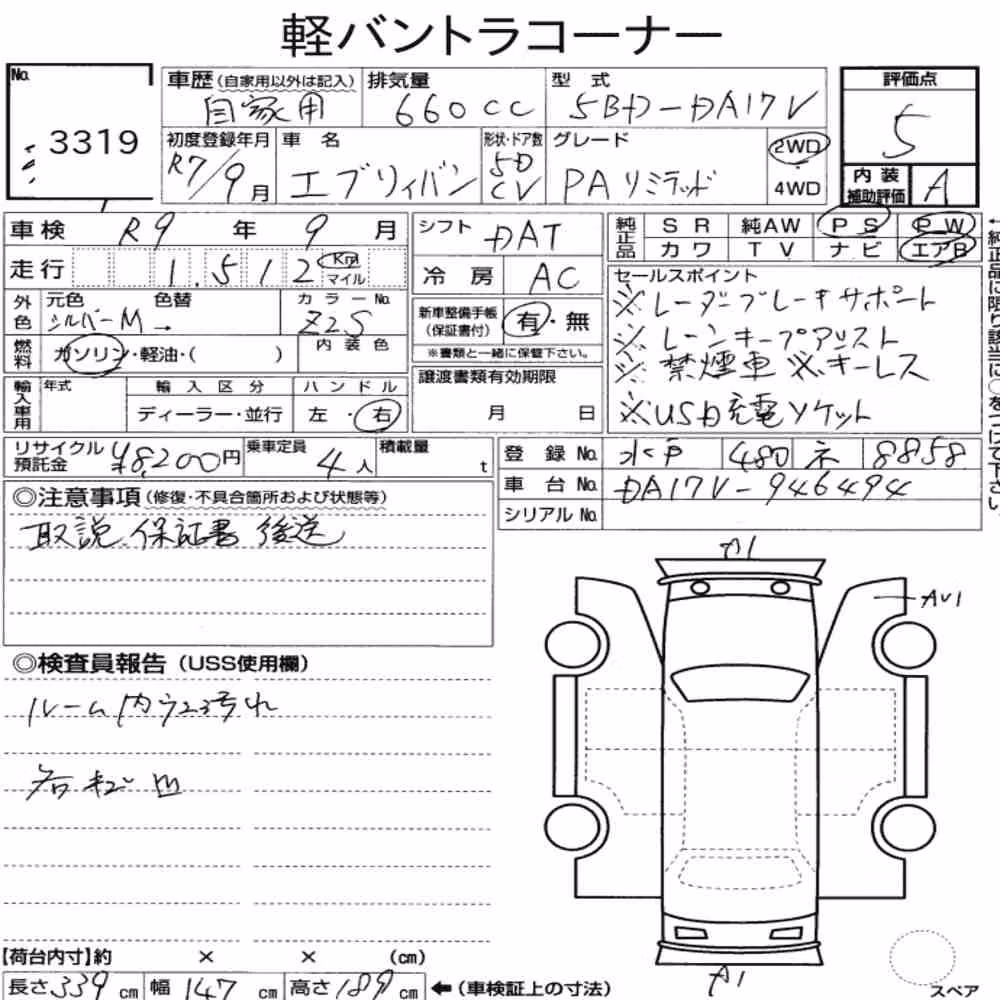 軽バントラコーナー
No. 3319
車歴 (自家用以外は記入) 自家用
排気量 660cc
型式 5BD-DA17V
評価点 5
初度登録年月 R7/9月
車名 エブリィバン
形状・ドア数 5D CV
グレード PAリミテッド
2WD
4WD
内装補助評価 A
車検 R9年 9月
シフト DAT
純正品 SR 純AW PS PW
カワ TV ナビ エアB
走行 1.512 Km マイル
冷房 AC
外色 元色 シルバーM 色替 →
カラーNo. Z2S
新車整備手帳 (保証書付) 有・無
※書類と一緒に保管下さい。
燃料 ガソリン・軽油・( )
内装色
輸入車用 年式 輸入区分 ハンドル
ディーラー・並行 左・右
譲渡書類有効期限
月 日
セールスポイント
※レーダーブレーキサポート
※レーンキープアシスト
※禁煙車 ※キーレス
※USB充電ソケット
←純正品に限り該当に○をつけて下さい。
リサイクル預託金 ¥8,200円
乗車定員 4人
積載量 t
登録No. 水戸 480 ネ 8858
車台No. DA17V-946494
シリアルNo.
◎注意事項 (修復・不具合箇所および状態等)
取説、保証書 後送
◎検査員報告 (USS使用欄)
ルーム内
A1
AU1
A1
スペア
【荷台内寸】約 × × (cm)
長さ339cm 幅147cm 高さ189cm ←(車検証上の寸法)